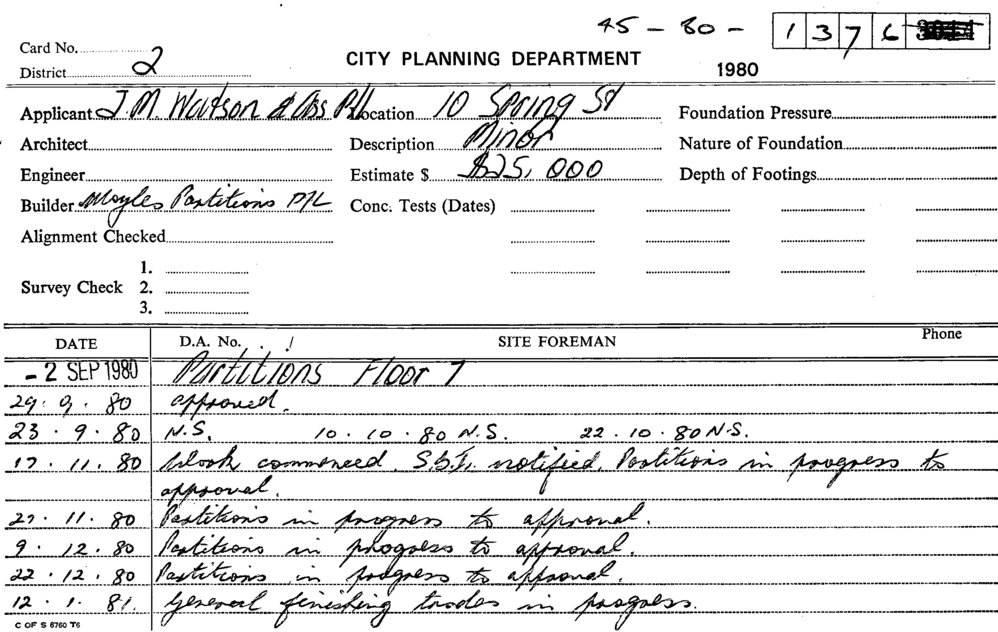 45 - 80 - 1 3 7 6
Card No. CITY PLANNING DEPARTMENT
District 2 1980
Applicant J. M. Watson & Ass P/L Location 10 Spring St Foundation Pressure
Architect Description Minor Nature of Foundation
Engineer Estimate $ $25,000 Depth of Footings
Builder Moyles Partitions P/L Conc. Tests (Dates)
Alignment Checked
1.
Survey Check 2.
3.
DATE D.A. No. / SITE FOREMAN Phone
- 2 SEP 1980 Partitions Floor 7
29. 9. 80 approved.
23 . 9 . 80 N.S. 10 . 10 . 80 N.S. 22 . 10 . 80 N.S.
17 . 11 . 80 Work commenced. notified. Partitions in progress to
approval.
27 . 11 . 80 Partitions in progress to approval.
9 . 12 . 80 Partitions in progress to approval.
22 . 12 . 80 Partitions in progress to approval.
12 . 1 . 81. General finishing trades in progress.
C OF S 6760 T6